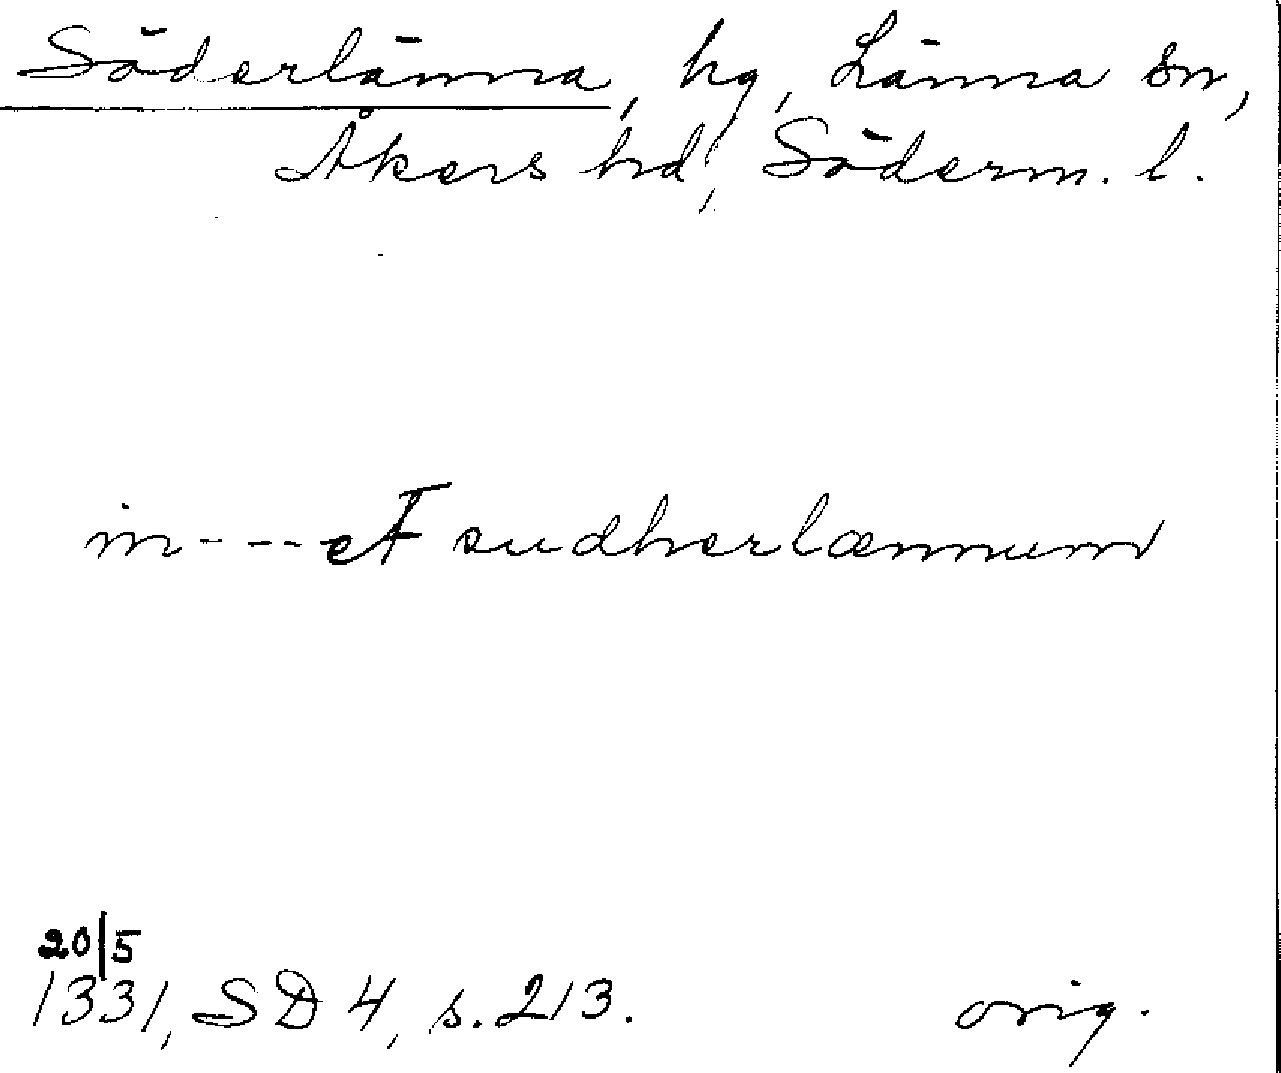 Söderlänna, hg, Länna sn,
Åkers hd, Söderm. l.
in - - - et sudherlænnum
20/5
1331, SD 4, s. 213. orig.